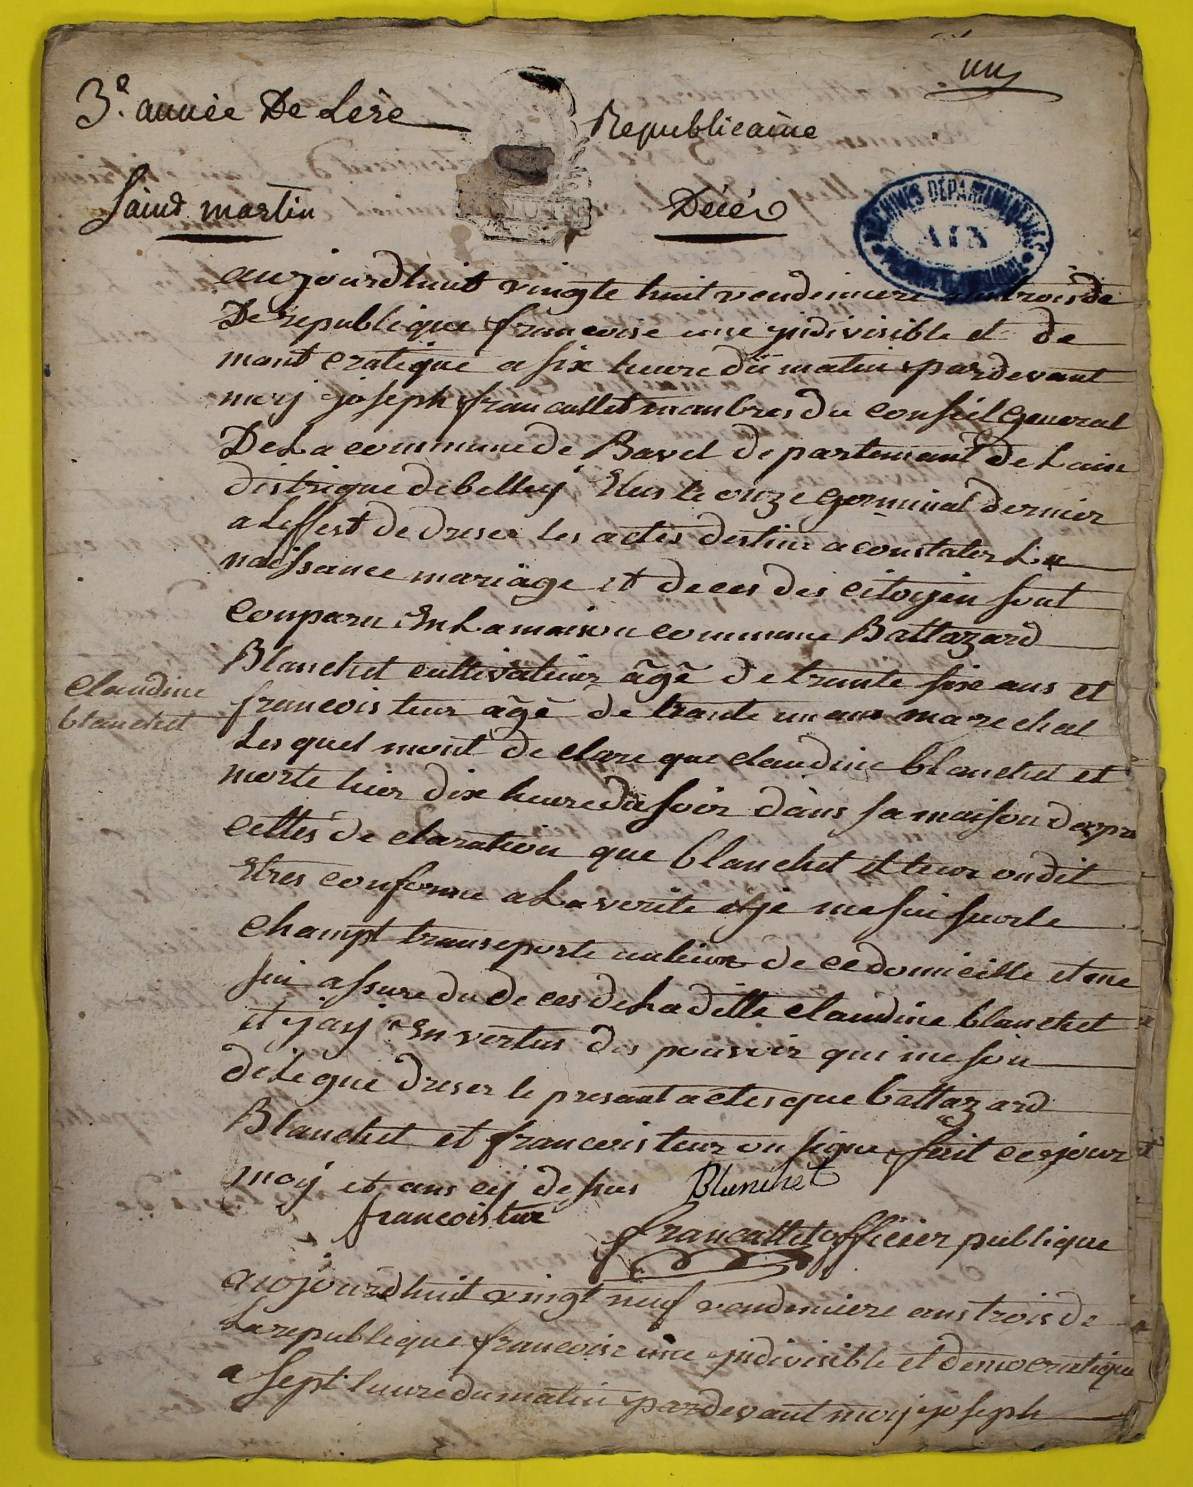 un
3.e année De Lere Republicaine
Saint martin Décé
ARCHIVES DÉPARTEMENTALES
AIN
aujourdhuit vingte huit vendemiere ans trois de
De republique francoise une yndivisible et de
mont cratique a six heure du matin pardevant
moy joseph francallet manbres du conseil general
De La commune de Bavel departemant de Lain
distrique de belley Elus le onze germinal dernier
a Leffest de dreser les actes destine a constater La
naissance mariage et deces des citoyen sont
conparu En La maison commune Baltazard
Blanchet cultivateur âgé de trante six ans et
francois teur âgé de trante un ans marechal
claudine
blanchet
Les quel mont de clare que claudine blanchet et
morte hier dix heure du soir dans sa maison dapre
celtes de claration que blanchet et teur on dit
Etres conforme a La verite et je me sui sur le
champt transporte au lieux de ce domicille et me
sui assure du de ces de La ditte claudine blanchet
et jay En vertus des pouvoir qui me soin
delegue dreser le presant actes que baltazard
Blanchet et francois teur on signe fait ce jour
moy et ans cy desus Blanchet
francois tur
francallet officier publique
aujourdhuit vingt neuf vendemiere ans trois de
La republique francoise une yndivisible et democratique
a sept heure du matin pardevant moy joseph